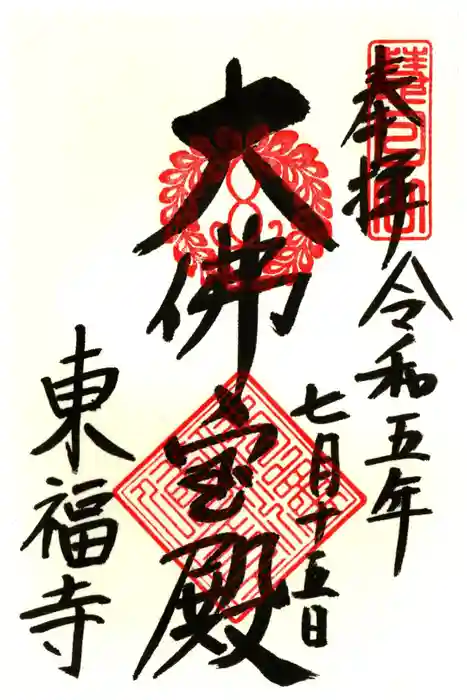 奉拝
令和五年
七月十五日
大佛宝殿
東福寺